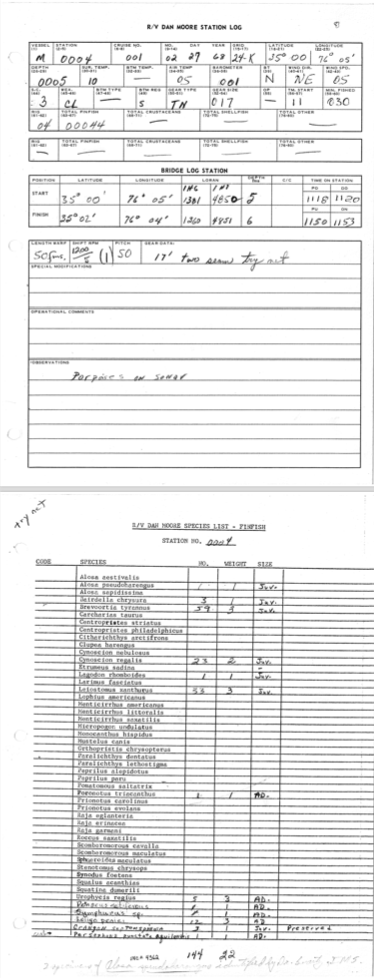 R/V DAN MOORE STATION LOG
VESSEL STATION CRUISE NO. MO. DAY YEAR GRID LATITUDE LONGITUDE
M 0004 001 02 27 68 24-K 35° 00 76° 05'
DEPTH SUR. TEMP. BTM TEMP. AIR TEMP BAROMETER BT WIND DIR. WIND SPD.
0005 10 — 05 001 N NE 05
GEAR TYPE GEAR SIZE TM. START MIN. FISHED
3 CL — S TN 017 — 11 030
RIG TOTAL FINFISH TOTAL CRUSTACEANS TOTAL SHELLFISH TOTAL OTHER
04 00044 — — —
RIG TOTAL FINFISH TOTAL CRUSTACEANS TOTAL SHELLFISH TOTAL OTHER
— — — — —
BRIDGE LOG STATION
POSITION LATITUDE LONGITUDE LORAN DEPTH C/C TIME ON STATION
START 35° 00' 76° 05' 4850 5 1118 1120
FINISH 35° 02' 76° 04' 6 1150 1153
LENGTH WARP SHIFT RPM PITCH GEAR DATA:
50 fms. 1200 (1) 50 17' two seam try net
SPECIAL MODIFICATIONS
OPERATIONAL COMMENTS
OBSERVATIONS
Porpoises on sonar
try net
R/V DAN MOORE SPECIES LIST - FINFISH
STATION NO. 0004
CODE SPECIES NO. WEIGHT SIZE
Alosa aestivalis
Alosa pseudoharengus 1 1 Juv.
Alosa sapidissima
Bairdiella chrysura 3 1 Juv.
Brevoortia tyrannus 59 3 Juv.
Carcharias taurus
Centropristes striatus
Centropristes philadelphicus
Citharichthys arctifrons
Clupea harengus
Cynoscion nebulosus
Cynoscion regalis 23 2 Juv.
Etrumeus sadina
Lagodon rhomboides 1 1 Juv.
Larimus fasciatus
Leiostomus xanthurus 53 3 Juv.
Lophius americanus
Menticirrhus americanus
Menticirrhus littoralis
Menticirrhus saxatilis
Micropogon undulatus
Monocanthus hispidus
Mustelus canis
Orthopristis chrysopterus
Paralichthys dentatus
Paralichthys lethostigma
Peprilus alepidotus
Peprilus paru
Pomatomus saltatrix
Poronotus triacanthus 1 AD.
Prionotus carolinus
Prionotus evolans
Raja eglanteria
Raja erinacea
Raja garmani
Roccus saxatilis
Scomberomorus cavalla
Scomberomorus maculatus
Sphoeroides maculatus
Stenotomus chrysops
Synodus foetens
Squalus acanthias
Squatina dumerili
Urophycis regius 5 3 AD.
1 AD.
Symphurus sp. 1 AD.
12 3 AD
Crangon septemspinosa 3 1 Juv. Preserved
1 AD.
144 22